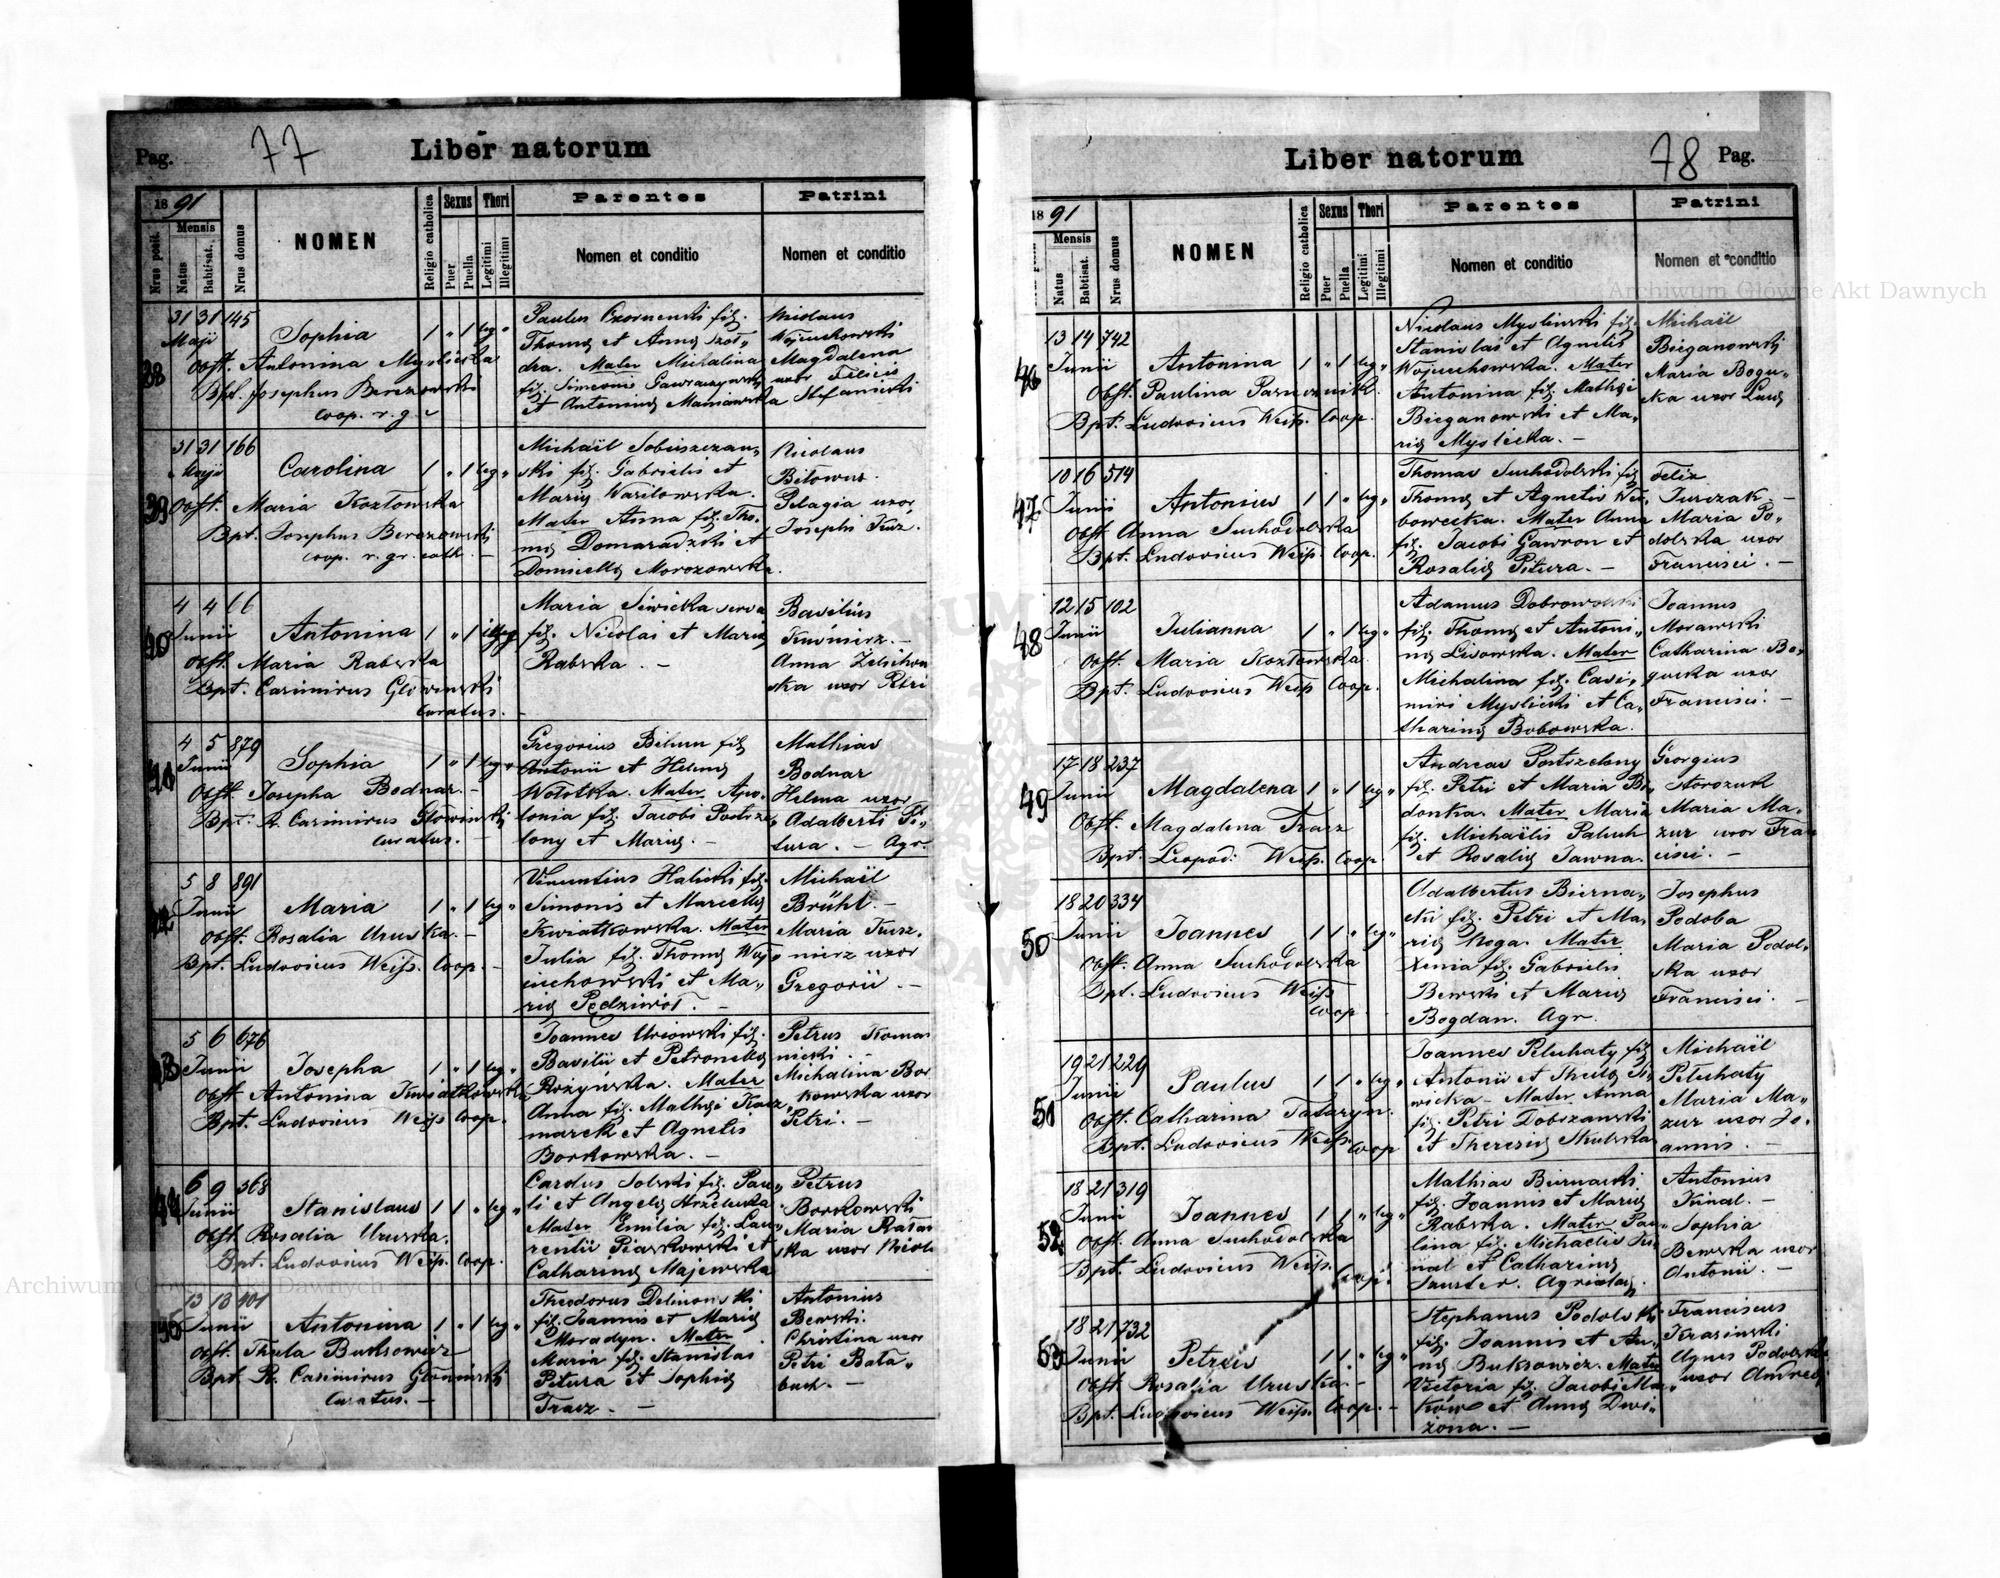 Pag. 77 Liber natorum
1891
Nrus posit.
Mensis
Natus
Babtisat.
Nrus domus
NOMEN
Religio catholica
Sexus
Puer
Puella
Thori
Legitimi
Illegitimi
Parentes
Nomen et conditio
Patrini
Nomen et conditio
38 31 31 145 Maji Sophia 1 " 1 leg "
Obst. Antonina Myslicka
Bpt. Josephus Berezowski
coop. r. g. c
Paulus
Thomę et Anna
Mater Michalina
filę. Simeonis
et Antoninę
Nicolaus
Wojciechowski
Magdalena
uxor Felicis
Stefanicki
39 31 31 166 Maji Carolina 1 " 1 leg "
Obst. Maria Kozłowska
Bpt. Josephus Berezowski
coop. r. gr. cath. —
Michaël Sobieszczan„
ski fil. Gabrielis et
Marię Wasilowska.
Mater Anna fil. Tho„
mę Domaradzki et
Domicellę Morozowska.
Nicolaus
Bilowus.
Pelagia uxor
Josephi Kuz.
40 4 4 66 Junii Antonina 1 " 1 illeg
Obst. Maria Rabska
Bpt. Casimirus Głowinski
curatus. —
Maria Siwicka serva
fil. Nicolai et Marię
Rabska. —
Basilius
Kusznierz. —
Anna
ska uxor Petri
41 4 5 879 Junii Sophia 1 " 1 leg "
Obst. Josepha Bodnar. —
Bpt. R. Casimirus Głowinski
curatus. —
Gregorius Bilum fil.
Antonii et Helenę
Wołotka. Mater Apo„
lonia fil. Jacobi Postrze
lony et Marię. —
Mathias
Bodnar
Helena uxor
Adalberti Pi„
tura. — Agr.
42 5 8 891 Junii Maria 1 " 1 leg "
Obst. Rosalia Uruska. —
Bpt. Ludovicus Weiss. Coop. —
Vincentius Halicki fil.
Simonis et Marcellę
Kwiatkowska. Mater
Julia fil. Thomę Woj„
ciechowski et Ma„
rię Pędziwół. —
Michaël
Brühl. —
Maria Kusz„
nierz uxor
Gregorii. —
43 5 6 676 Junii Josepha 1 " 1 leg "
Obst. Antonina Kwiatkowska
Bpt. Ludovicus Weiss Coop.
Joannes Uruowski fil.
Basilii et Petronellę
Rożyńska. Mater
Anna fil. Mathęi Kacz„
marek et Agnetis
Borkowska. —
Petrus Koma
nicki. —
Michalina Bor
kowska uxor
Petri. —
44 6 9 368 Junii Stanislaus 1 1 " leg "
Obst. Rosalia Uruska.
Bpt. Ludovicus Weiss. Coop.
Carolus Solski fil. Pau„
li et Angelę
Mater Emilia fil. Lau„
rentii Piaskowski et
Catharinę Majewska
Petrus
Borkowski
Maria
ska uxor Nicol
45 13 13 401 Junii Antonina 1 " 1 leg "
Obst. Thecla Buksowicz
Bpt. R. Casimirus Głowinski
curatus. —
Theodorus Delinowski
fil. Joannis et Marię
Moradyn. Mater
Maria fil. Stanislai
Pitura et Sophię
Tracz. —
Antonius
Bewski.
Christina uxor
Petri Bała„
buch. —
Liber natorum 78 Pag.
1891
Mensis
Natus
Babtisat.
Nrus domus
NOMEN
Religio catholica
Sexus
Puer
Puella
Thori
Legitimi
Illegitimi
Parentes
Nomen et conditio
Patrini
Nomen et conditio
46 13 14 742 Junii Antonina 1 " 1 leg "
Obst. Paulina
Bpt. Ludovicus Weiss. Coop.
Nicolaus Myslinski fil.
Stanislai et Agnetis
Wojciechowska. Mater
Antonina fil. Mathęi
Bieganowski et Ma„
rię Myslicka. —
Michaël
Bieganowski
Maria Bogu„
cka uxor
47 10 16 514 Junii Antonius 1 1 " leg "
Obst. Anna Suchodolska
Bpt. Ludovicus Weiss. Coop.
Thomas Suchodolski fil.
Thomę et Agnetis
Mater Anna
fil. Jacobi Gawron et
Rosalię Pitura. —
Felix
Jurczak. —
Maria Po„
dolska uxor
Francisci. —
48 12 15 102 Junii Julianna 1 " 1 leg "
Obst. Maria Kozłowska.
Bpt. Ludovicus Weiss Coop.
Adamus Dobrowolski
fil. Thomę et Antoni„
nę Lisowska. Mater
Michalina fil. Casi„
miri Myslicki et Ca„
tharinę Bobowska.
Joannes
Morawski
Catharina Bo„
gucka uxor
Francisci. —
49 17 18 237 Junii Magdalena 1 " 1 leg "
Obst. Magdalena Tracz
Bpt. Leopod: Weiss. Coop.
Andreas Postrzelony
fil. Petri et Maria
Mater Maria
fil. Michaëlis Paluch
et Rosalię Jawna.
Georgius
Storozuk
Maria Ma„
zur uxor Fran
cisci. —
50 18 20 334 Junii Joannes 1 1 " leg "
Obst. Anna Suchodolska
Bpt. Ludovicus Weiss
Coop.
Adalbertus Bierna„
cki fil. Petri et Ma„
rię Noga. Mater
Xenia fil. Gabrielis
Bewski et Marię
Bogdan. Agr.
Josephus
Podoba
Maria Podol„
ska uxor
Francisci. —
51 19 21 229 Junii Paulus 1 1 " leg "
Obst. Catharina Tataryn.
Bpt. Ludovicus Weiss.
Coop
Joannes Peluchaty fil.
Antonii et
wicka. — Mater Anna
fil. Petri Dobrzanski
et Theresię Skulska
Michaël
Peluchaty
Maria Ma„
zur uxor Jo„
annis. —
52 18 21 319 Junii Joannes 1 1 " leg "
Obst. Anna Suchodolska
Bpt. Ludovicus Weiss.
Coop.
Mathias Biernacki
fil. Joannis et Marię
Rabska. Mater Pau„
lina fil. Michaelis Ki„
nal et Catharinę
Szuster. Agricolę.
Antonius
Kinal. —
Sophia
Bewska uxor
Antonii. —
53 18 21 732 Junii Petrus 1 1 " leg "
Obst. Rosalia Uruska. —
Bpt. Ludovicus Weiss. Coop. —
Stephanus Podolski
fil. Joannis et An„
nę Buksowicz. Mater
Victoria fil. Jacobi Ma„
ków et Annę Dwi„
żona. —
Franciscus
Krasinski
Agnes Podolska
uxor Andreę
Archiwum Główne Akt Dawnych
Archiwum Główne Akt Dawnych